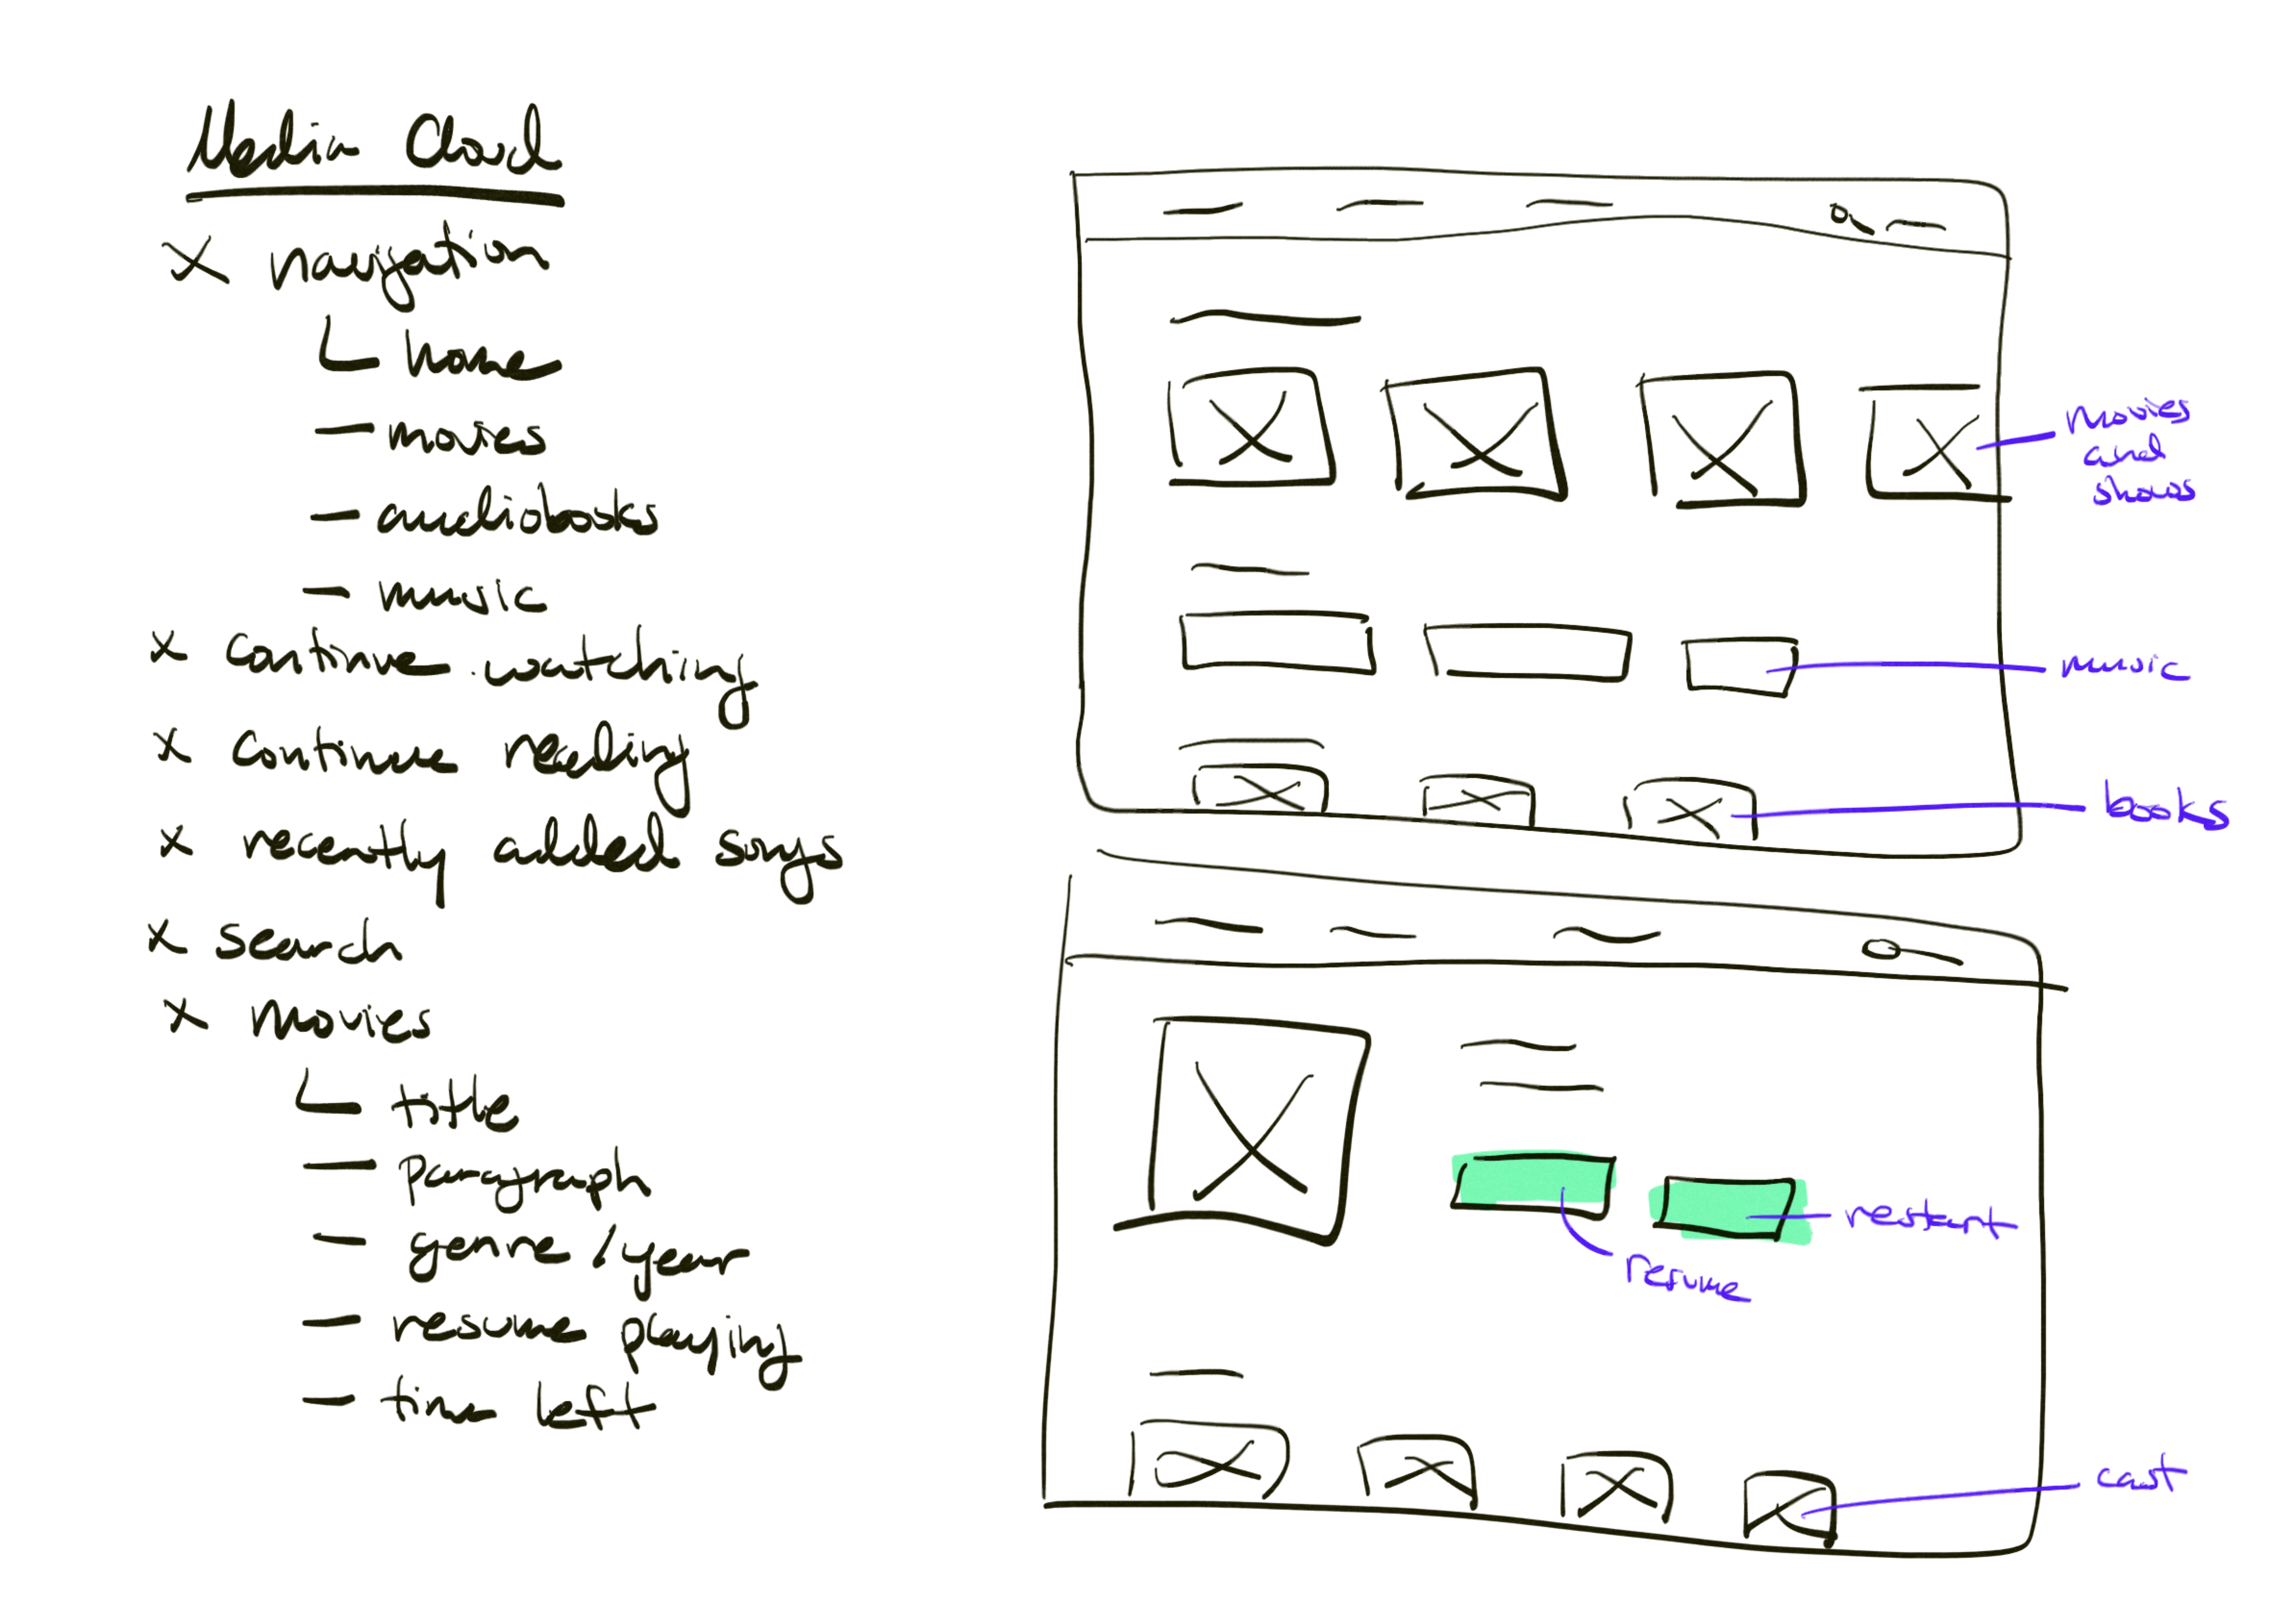 Media Cloud
x navigation
home
- movies
- audiobooks
- music
x continue watching
x continue reading
x recently added songs
x search
x movies
title
- paragraph
- genre / year
- resume playing
- time left
movies
and
shows
music
books
restart
resume
cast